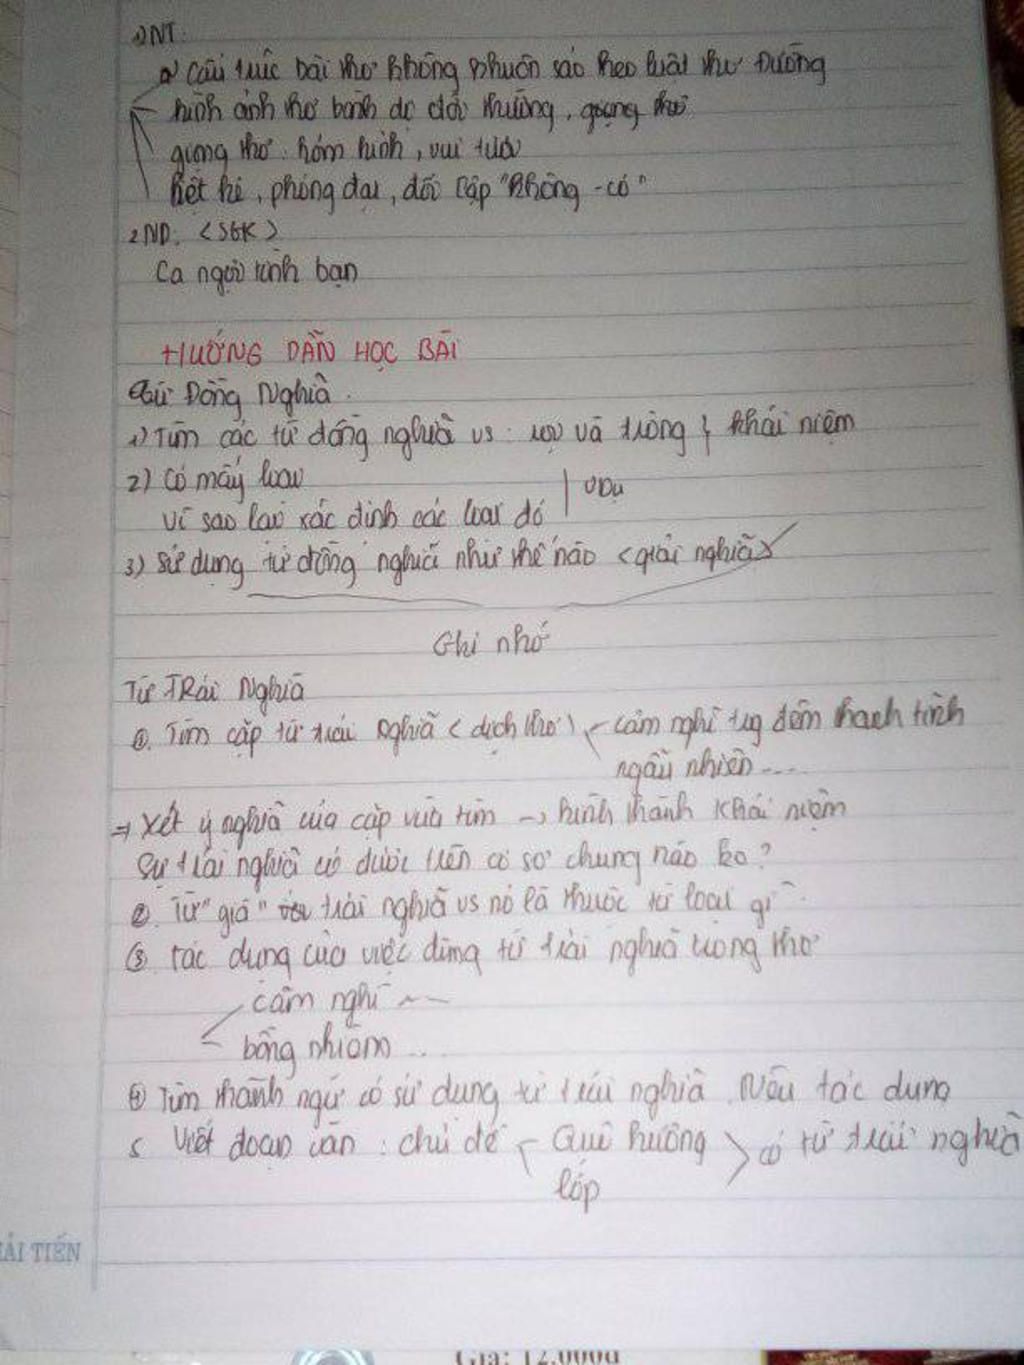 1) NT:
a) Cấu trúc bài thơ không khuôn sáo theo luật thơ Đường
hình ảnh thơ bình dị đời thường, giọng thơ
giọng thơ hóm hỉnh, vui tươi
liệt kê, phóng đại, đối lập "không - có"
2 ND: <SGK>
Ca ngợi tình bạn
HƯỚNG DẪN HỌC BÀI
Từ Đồng Nghĩa.
1) Tìm các từ đồng nghĩa vs: rọi và trông } khái niệm
2) Có mấy loại
Vì sao lại xác định các loại đó | VDụ
3) Sử dụng từ đồng nghĩa như thế nào <giải nghĩa>
Ghi nhớ
Từ TRái Nghĩa
①. Tìm cặp từ trái nghĩa (dịch thơ) cảm nghĩ trg đêm thanh tĩnh
ngẫu nhiên ....
=> Xét ý nghĩa của cặp vừa tìm -> hình thành khái niệm
Sự trái nghĩa có được trên cơ sở chung nào ko?
②. Từ "già" trái nghĩa vs nó là thuộc từ loại gì
③ Tác dụng của việc dùng từ trái nghĩa trong thơ
cảm nghĩ
④ Tìm thành ngữ có sử dụng từ trái nghĩa. Nêu tác dụng
5 Viết đoạn văn: chủ đề Quê hương có từ trái nghĩa
lớp
HẢI TIẾN
Giá: 12.000đ